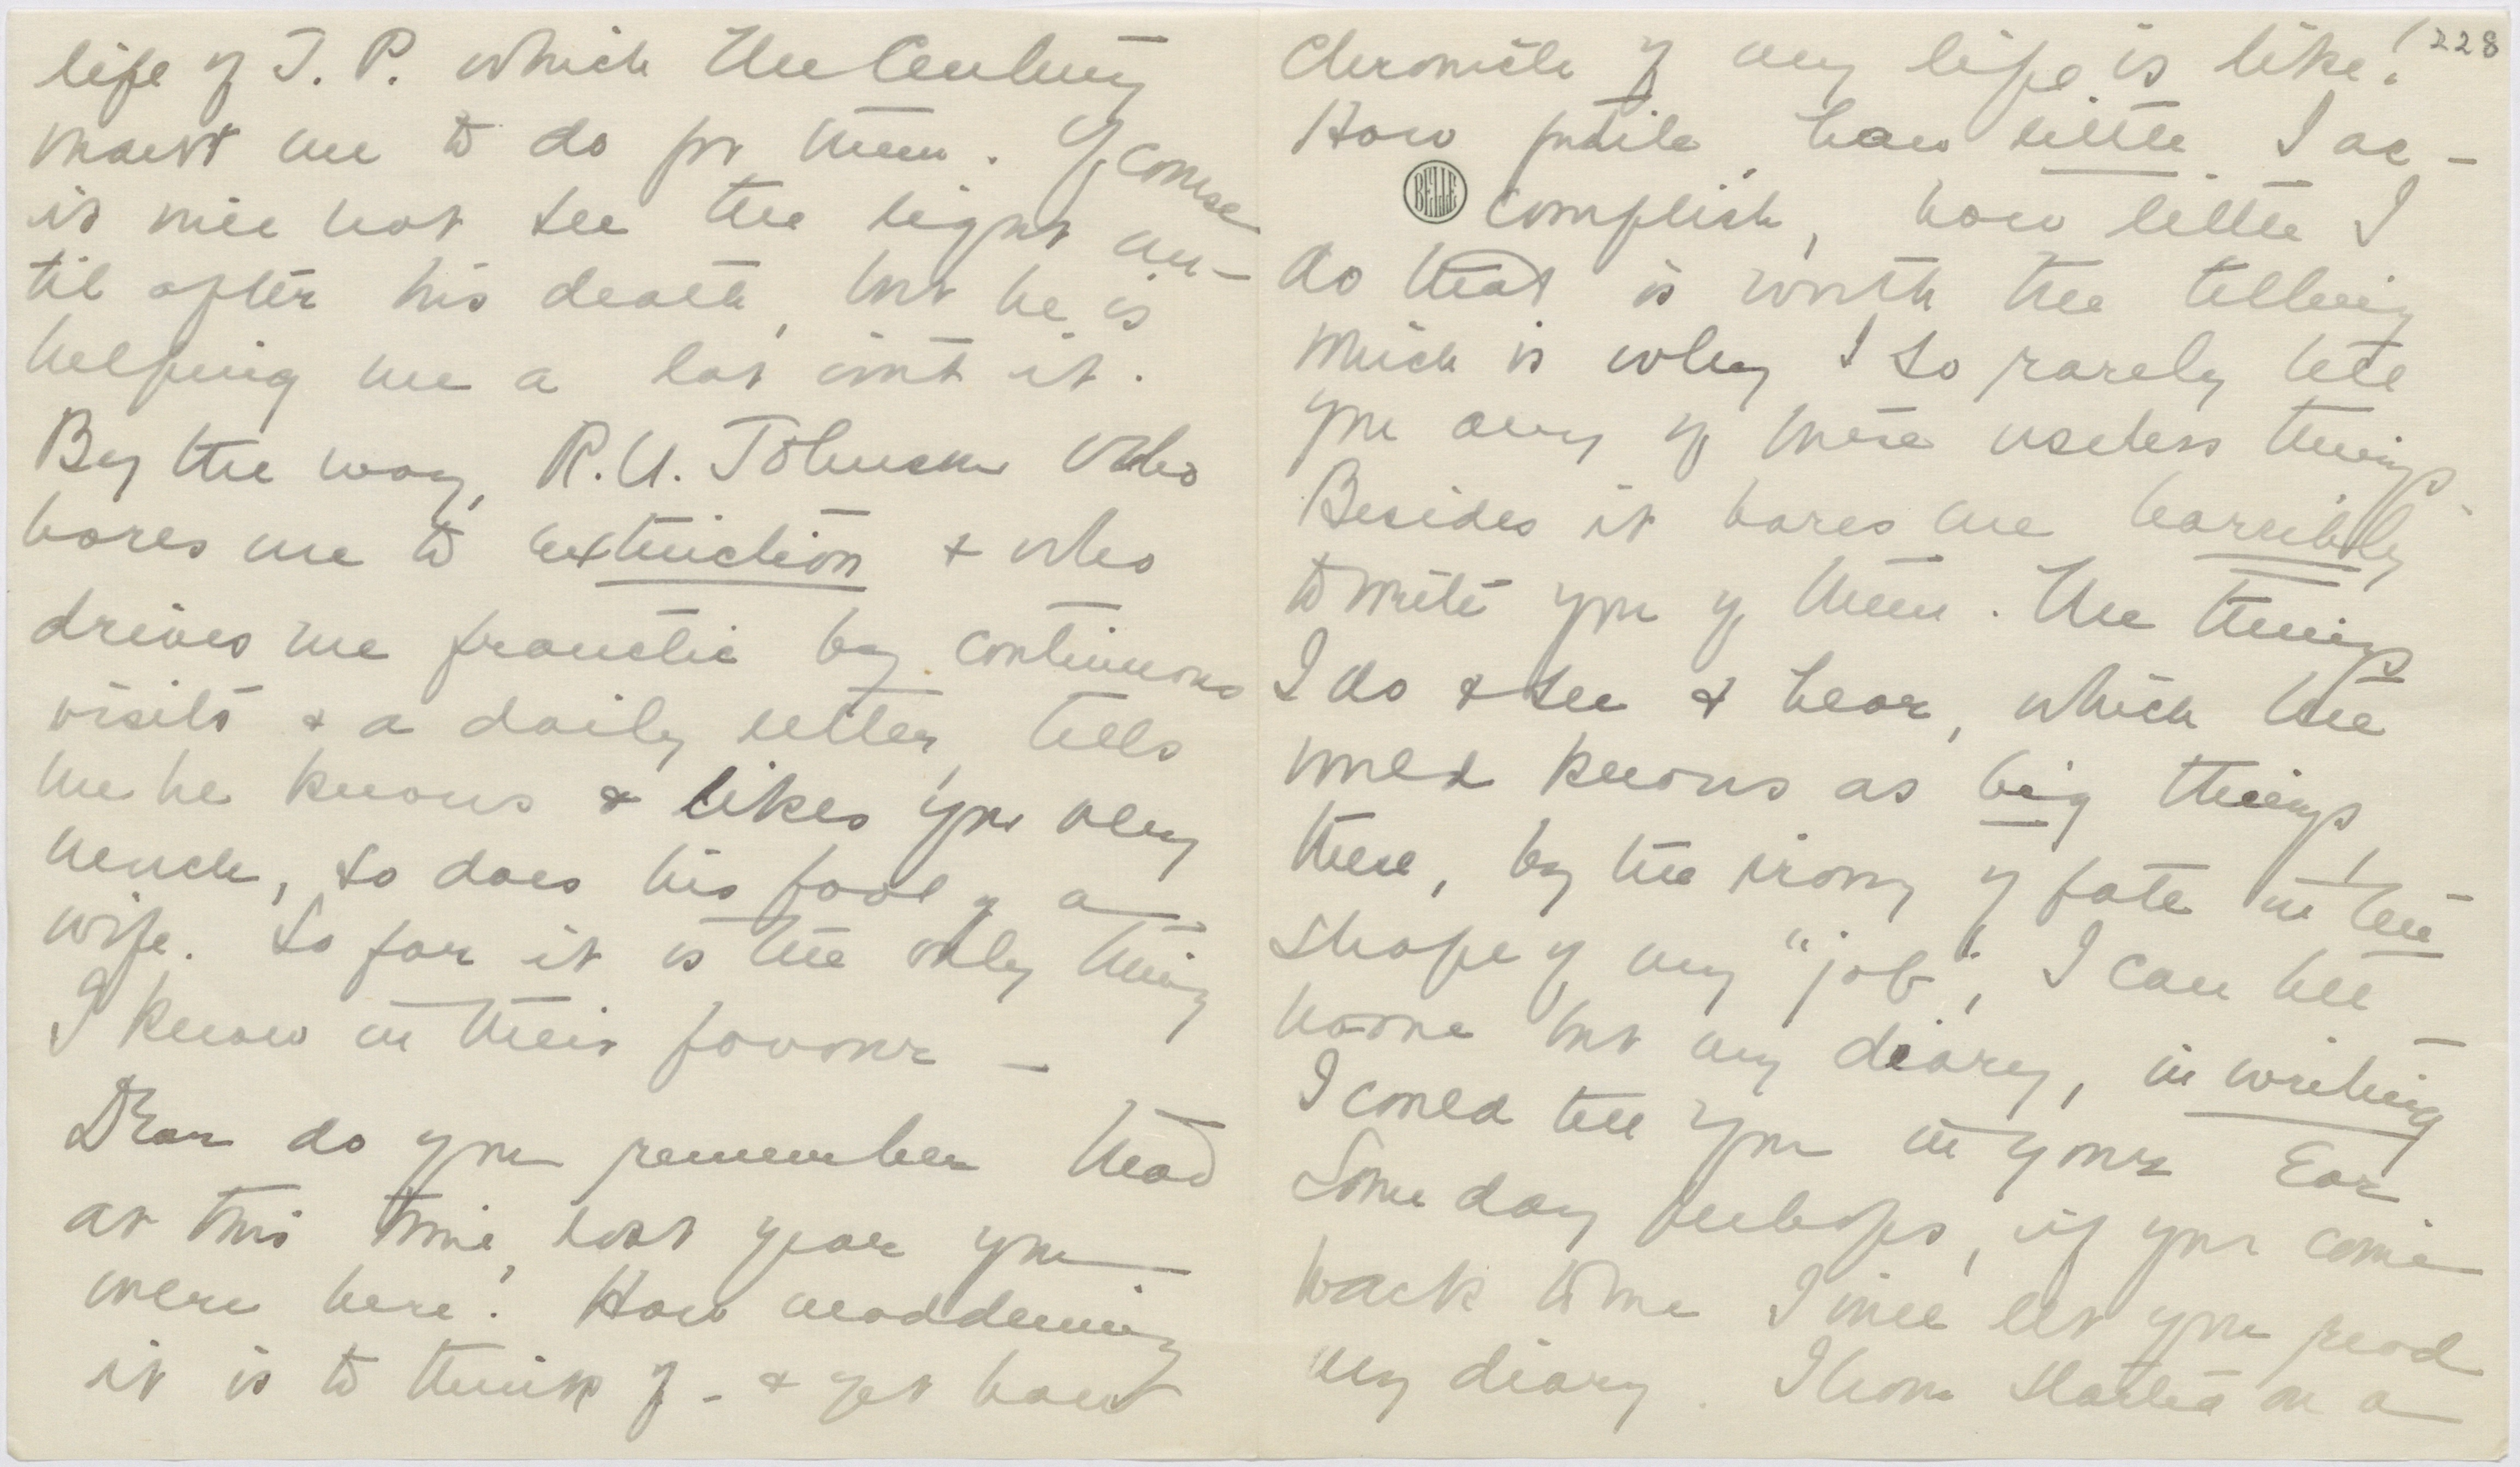 life of J. P. which the Century
want me to do for them. Of course
it will not see the light un-
til after his death, but he is
helping me a lot with it.
By the way, R. U. Johnson who
bores me to extinction & who
drives me frantic by continuous
visits & a daily letter, tells
me he knows & likes you very
much, so does his fool of a
wife. So far it is the only thing
I know in their favour —
Dear do you remember that
at this time, last year you
were here! How maddening
it is to think of - & yet how
228
Chronicle of my life is like!
How futile, how little I ac-
BELLE
complish, how little I
do that is worth the telling
which is why I so rarely tell
you any of these useless things.
Besides it bores me horribly
to write you of them. The things
I do & see & hear, which the
world knows as big things,
these, by the irony of fate in the
shape of my "job", I can tell
no one but my diary, in writing
I could tell you in your ear
Some day perhaps, if you come
back to me I will let you read
my diary. I have started on a